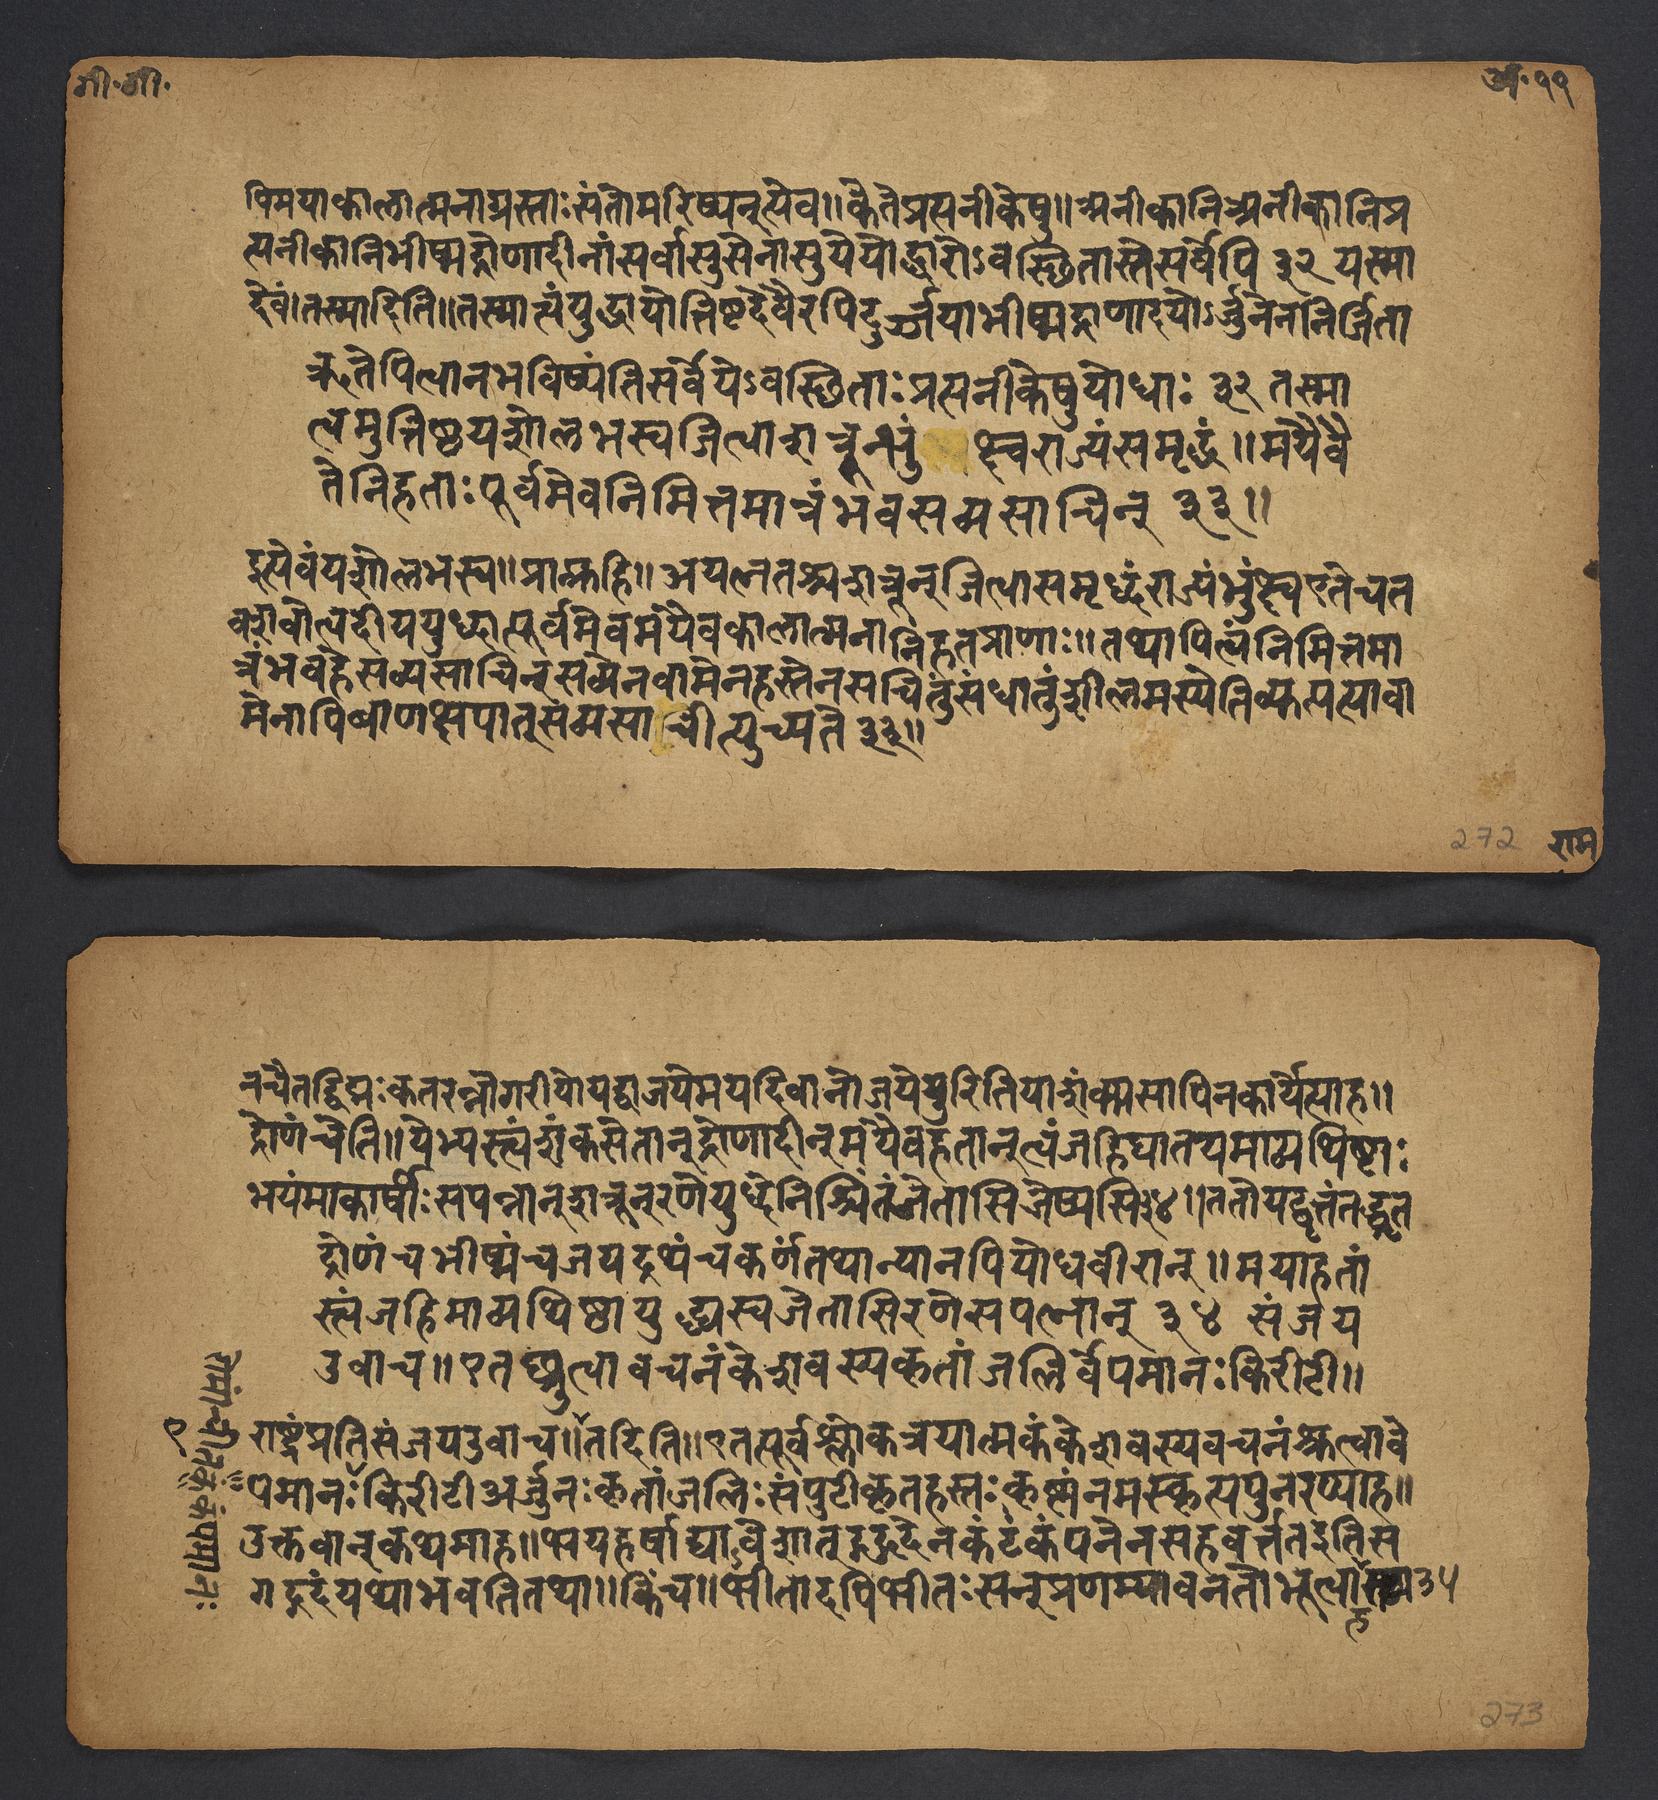 गी.गी.
अ.११
पिमयाकालात्मनाग्रस्ताःसंतोमरिष्यन्त्येव॥केतेप्रत्यनीकेषु॥अनीकानिअनीकानिप्र
त्यनीकानिभीष्मद्रोणादीनांसर्वासुसेनासुयेयोद्धारोऽवस्छितास्तेसर्वेपि ३२ यस्मा
देवं।तस्मादिति॥तस्मात्त्वंयुद्धायोत्तिष्टदेवैरपिदुर्ज्जयाभीष्मद्रोणादयोऽर्जुनेननिर्जिता
ऋतेपित्वानभविष्यंतिसर्वेयेऽवस्छिताःप्रत्यनीकेषुयोधाः ३२ तस्मा
त्वमुत्तिष्ठयशोलभस्वजित्वाशत्रून्भुं क्ष्वराज्यंसमृद्धं॥मयैवै
तेनिहताःपूर्वमेवनिमित्तमात्रंभवसव्यसाचिन् ३३॥
इत्येवंयशोलभस्व॥प्राप्नुहि॥अयत्नतश्चशत्रून्जित्वासमृध्धंराज्यंभुंक्ष्वएतेचत
वशवोत्वदीययुध्धात्पूर्वमेवमयैवकालात्मनानिहतप्राणाः॥तथापित्वंनिमित्तमा
त्रंभवहेसव्यसाचिन्सव्येनवामेनहस्तेनसचितुंसंधातुंशीलमस्येतिव्युत्पत्यावा
मेनापिबाणक्षेपात्सव्यसाचीत्युच्यते ३३॥
272
राम
नचैतद्विद्मःकतरन्नोगरीयोयद्वाजयेमयदिवानोजयेयुरितियाशंकासापिनकार्येत्याह॥
द्रोणंचेति॥येभ्यस्त्वंशंकसेतान्द्रोणादीन्मयैवहतान्त्वंजहिघातयमाव्यथिष्टाः
भयंमाकार्षीःसपत्नान्शत्रून्रणेयुध्धेनिश्चितंजेतासिजेष्यसि३४॥ततोयद्वृत्तंतद्धृत
द्रोणंचभीष्मंचजयद्रथंचकर्णंतथान्यानपियोधवीरान्॥मयाहतां
स्त्वंजहिमाव्यथिष्ठायुद्ध्यस्वजेतासिरणेसपत्नान् ३४ संजय
उवाच॥एतछ्रुत्वावचनंकेशवस्यकृतांजलिर्वेपमानःकिरीटी॥
राष्ट्रंप्रतिसंजयउवाच॥ँतदिति॥एतत्पूर्वश्लोकत्रयात्मकंकेशवस्यवचनंश्रुत्वावे
पमानःँकिरीटीअर्जुनःकृतांजलिःसंपुटीकृतहस्तःकृष्णंनमस्कृत्यपुनरप्याह॥
उक्तवान्कथमाह॥भयहर्षाद्यावेशात्गद्गदेनकंठकंपनेनसहवर्त्ततइतिस
गद्गदंयथाभवतितथा॥किंच॥भीतादपिभीतःसन्प्रणम्यावनतोभूत्वा ३५
ए
273